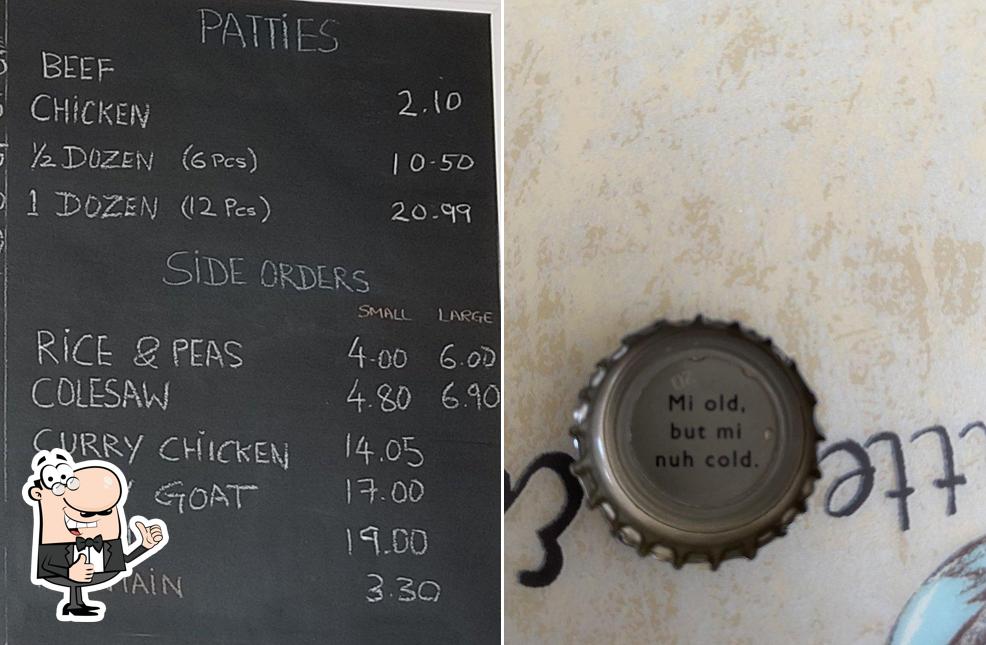 PATTiES
BEEF
CHiCKEN 2.10
½ DOZEN (6 Pcs) 10-50
1 DOZEN (12 Pcs) 20-99
SiDE ORDERS
SMALL LARGE
RiCE & PEAS 4-00 6.00
COLESAW 4.80 6.90
CURRY CHiCKEN 14.05
GOAT 17.00
19.00
3.30
Mi old,
but mi
nuh cold.